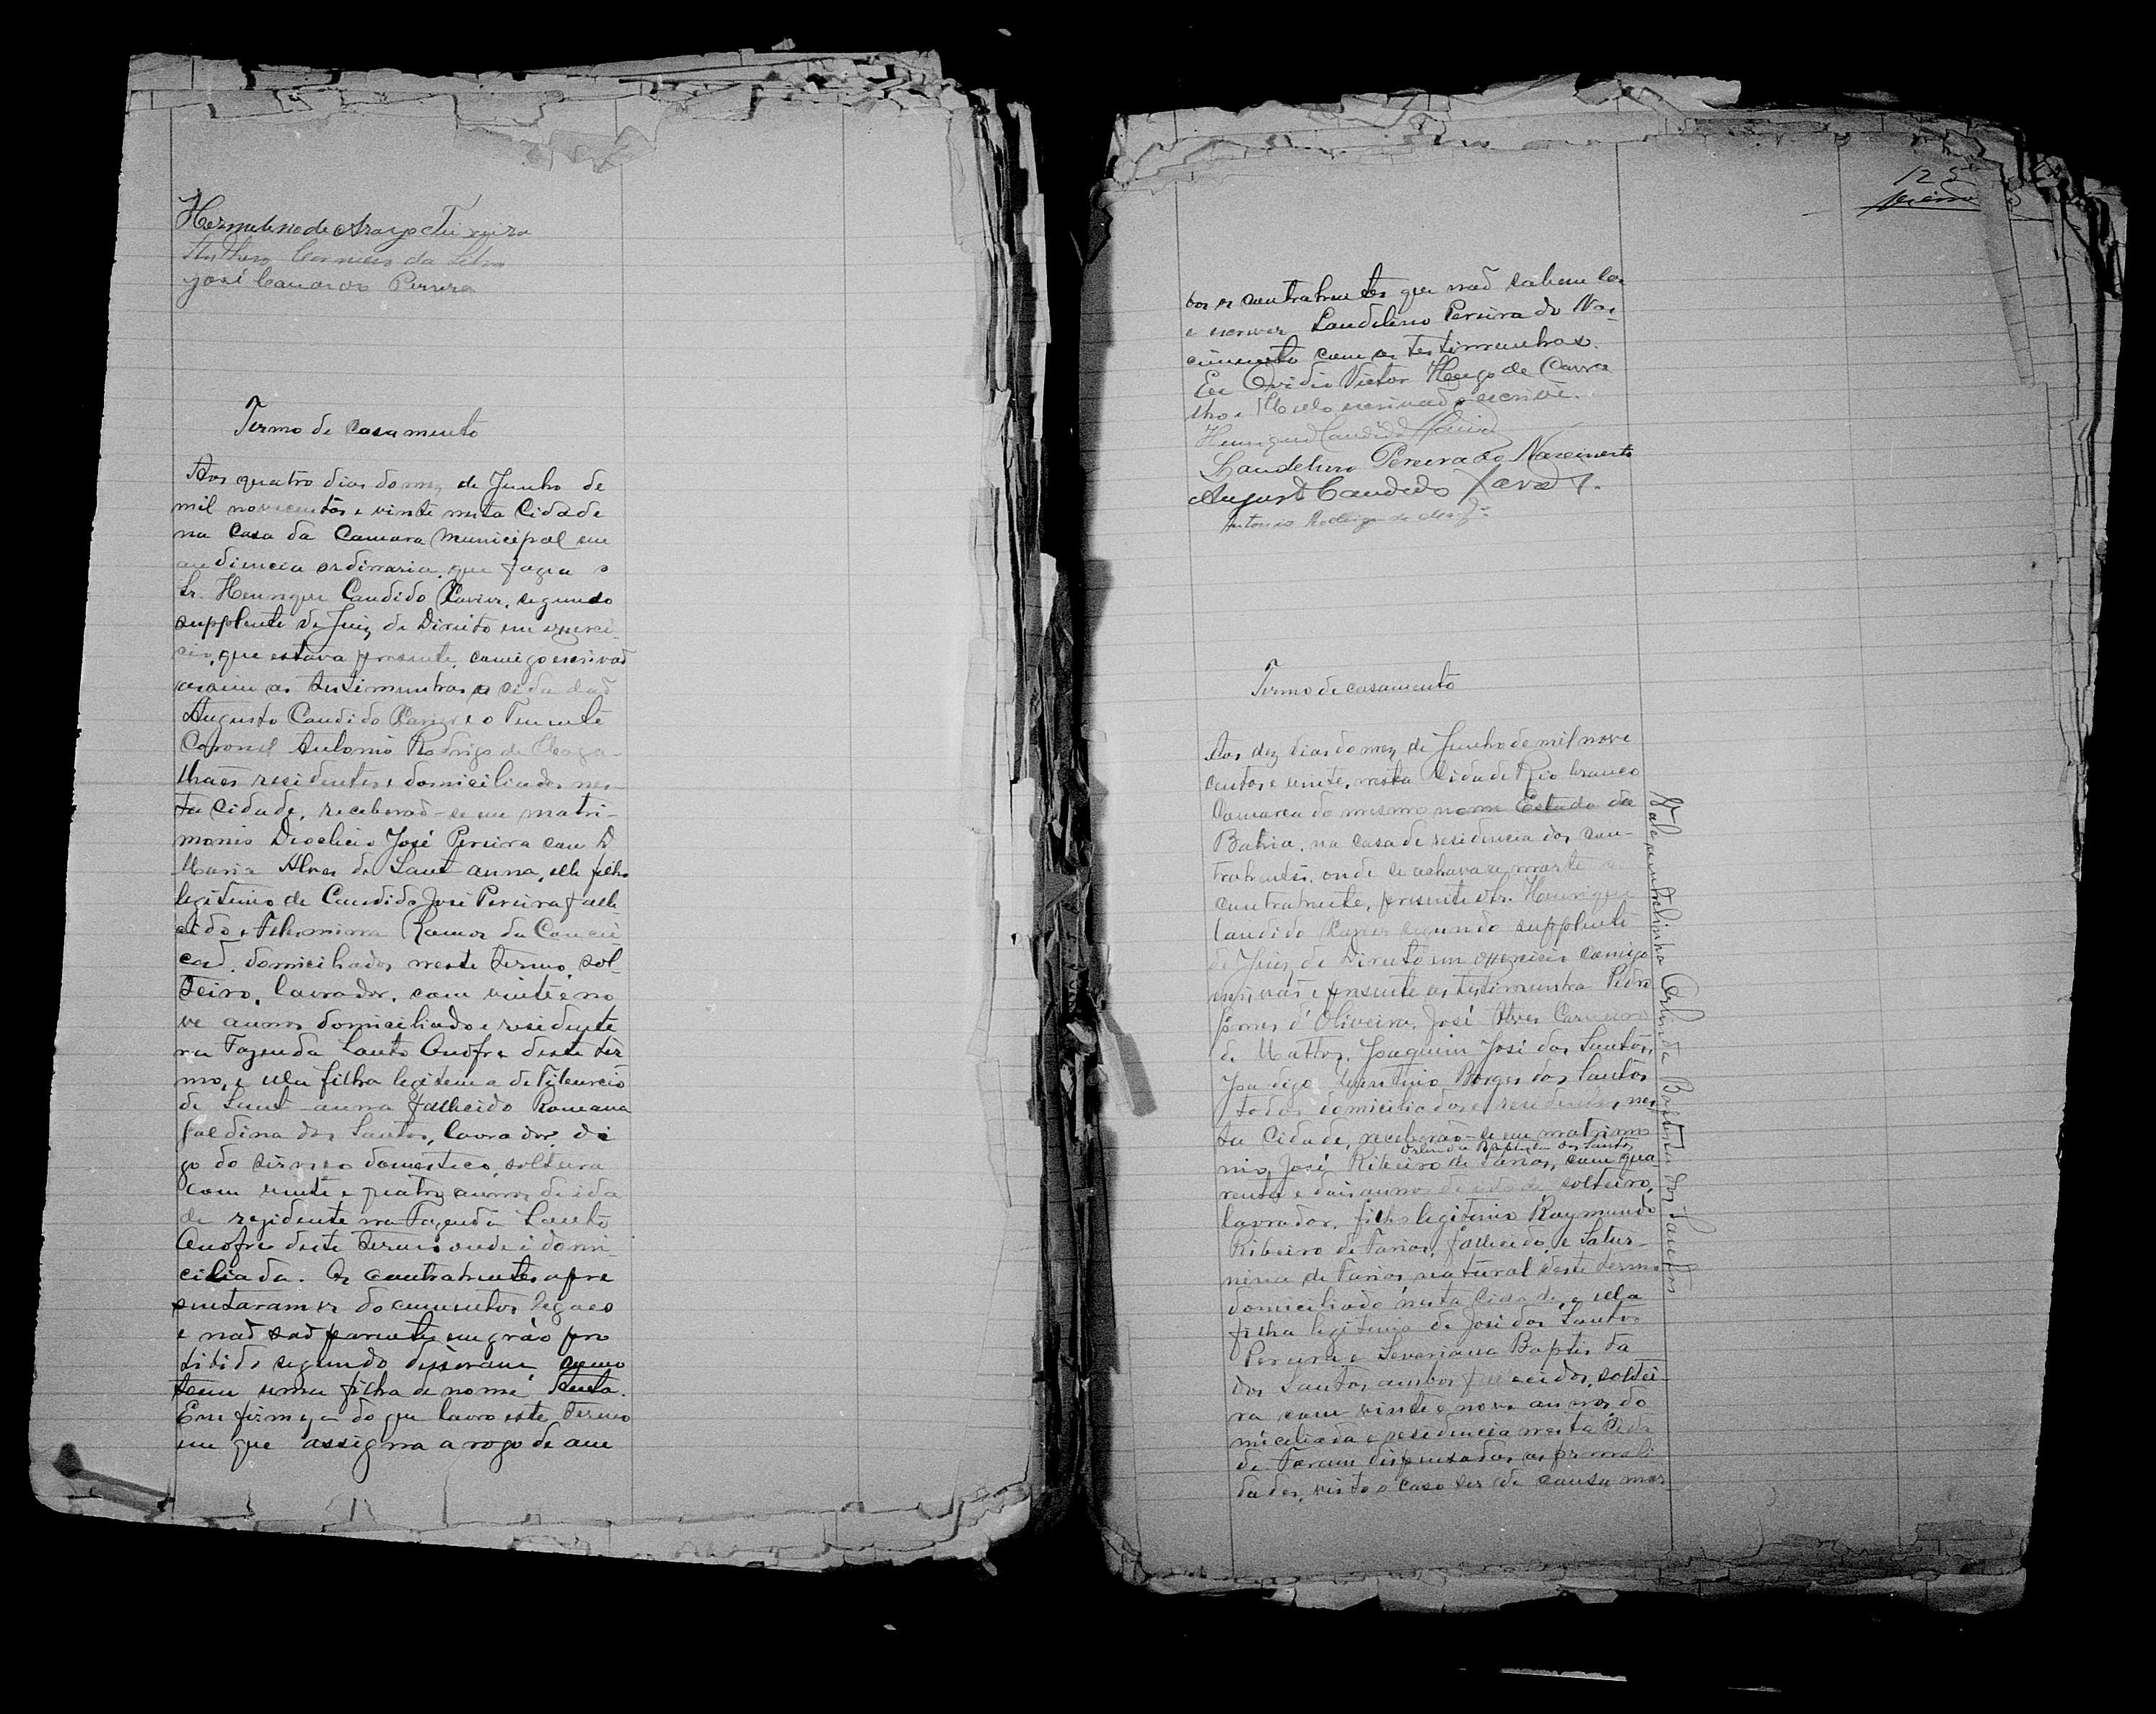 Hermelino de Araujo Teixeira
Anthero Carneiro da Silva
José Candido Pereira
Termo de Casamento
Aos quatro dias do mez de Junho de
mil novecentos e vinte nesta Cidade
na Casa da Camara Municipal em
audiencia ordinaria que fazia o
Sr. Henrique Candido Xavier, segundo
supplente de Juiz de Direito em exerci-
cio, que estava presente, comigo escrivaõ
assim as testimunhas o cidadaõ
Augusto Candido Xavier e o Tenente
Coronel Antonio Rodrigo de Maga-
lhães residentes e domiciliados nes-
ta Cidade, receberaõ-se em matri-
monio Diochcio José Pereira com D
Maria Alves de Sant anna, elle filho
legitimo de Candido José Pereira falle-
cido e Felismina Ramos da Concei-
caõ, domiciliados neste termo, sol-
teiro, lavrador, com vinte e no
ve annos domiciliado e residente
na Fazenda Santo Onofre deste ter
mo, e ella filha legitima de
de Sant-anna fallecido Romana
Galdina dos Santos, lavrador, di
go do serviço domestico, solteira
com vinte e quatro annos de ida
de residente na Fazenda Santo
Onofre deste termo onde é domi-
ciliada. Os contratentes apre
sentaram os documentos legaes
e naõ saõ parentes em gráo pro
hibido segundo disseram, como
tem uma filha de nome
Em firmeza do que lavro este termo
em que assigna a rogo de am
125
bos os contratentes que naõ sabem ler
e escrever Laudelino Pereira do Nas-
cimento com as testimunhas.
Eu Ovidio Victor Hugo de Carva
lho e Mello escrivaõ o escrivi.
Henrique Candido Xavier
Laudelino Pereira do Nascimento
Augusto Candido Xavier
Antonio Rodrigo de Magªˢ
Termo de casamento
Aos dez dias do mez de Junho de mil nove
centos e vinte, nesta Cidade Rio Branco
Comarca do mesmo nome Estado da
Bahia, na casa de residencia dos con-
trahentes, onde se achava a
contratente, presente o Sr. Henrique
Candido Xavier segundo supplente
de Juiz de Direito em exercicio comigo
escrivaõ e presente as testimunha Pedro
Gomes d'Oliveira, José Alves Carneiro
de Mattos, Joaquim José dos Santos,
digo Borges dos Santos
todos domiciliados e residentes nes-
ta Cidade, receberão-se em matrimo
Orlinda Baptista dos Santos
nio, José Ribeiro de Farias, com qua-
renta e dois annos de idade, solteiro,
lavrador, filho legitimo Raymundo
Ribeiro de Farias, fallecido, e Satur-
nina de Farias natural deste termo
domiciliado nesta Cidade, e ella
filha legitima de José dos Santos
Pereira e Severiana Baptista
dos Santos ambos fallecidos, soltei-
ra com vinte e nove annos, do
miciliada e residencia nesta Cida
de. Foram dispensadas as formali
dades, visto o caso ser de causa mor-
Vale entrelinha Orlinda Baptista dos Santos